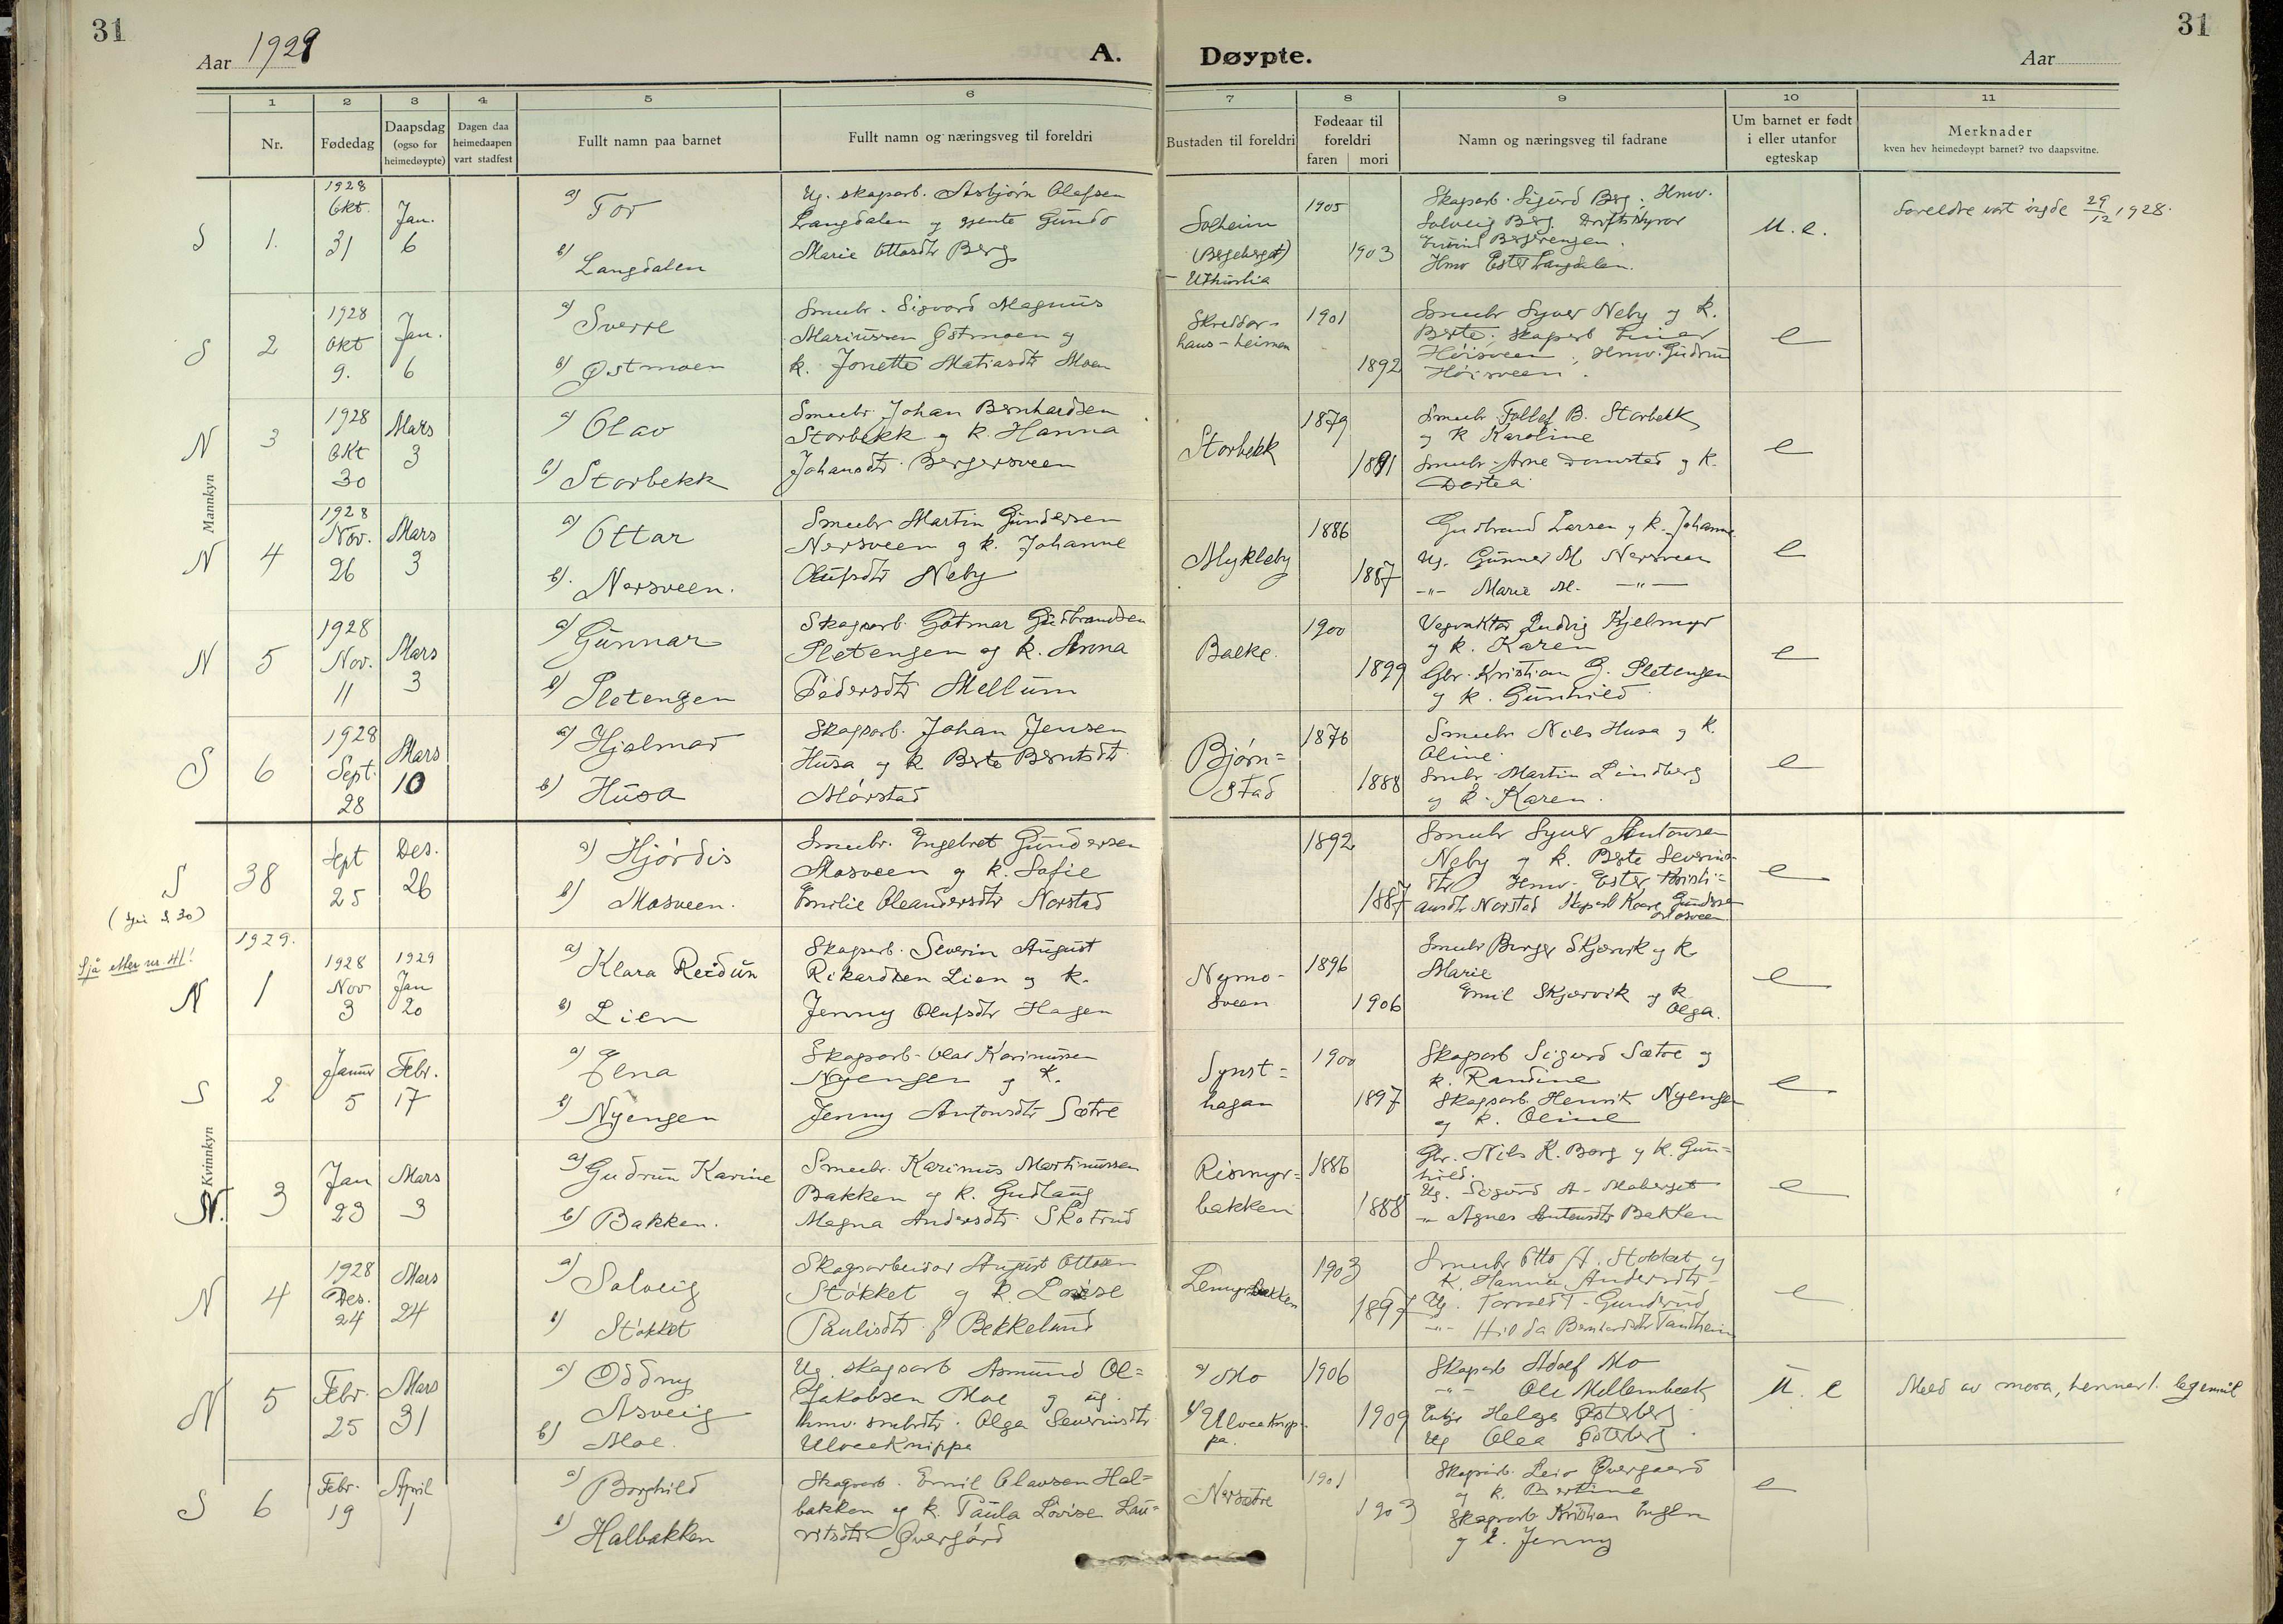 31
31
Aar 1929
A. Døypte.
Aar
1 2 3 4 5 6 7 8 9 10 11
Nr.
Fødedag
Daapsdag (ogso for heimedøypte)
Dagen daa heimedaapen vart stadfest
Fullt namn paa barnet
Fullt namn og næringsveg til foreldri
Bustaden til foreldri
Fødeaar til foreldri
faren mori
Namn og næringsveg til fadrane
Um barnet er født i eller utanfor egteskap
Merknader
kven hev heimedøypt barnet? tvo daapsvitne.
Mannkyn
S 1. 1928 Okt. 31 Jan. 6
a) Tor
b) Langdalen
Ug. skagsarb. Asbjørn Olafsen
Langdalen og gjente Gunda
Marie Ottosdtr Berg
Solheim
(Bergeberget)
1905 1903
Skagsarb. Sigurd Berg; Hmv.
Solveig Berg.
Hmv Ester Langdalen.
U. e.
Foreldre vart vigde 29/12 1928.
S 2 1928 Okt 9. Jan. 6
a) Sverre
b) Østmoen
Smubr. Sigvard Magnus
Mariussen Østmoen og
k. Jonette Matiasdtr Moen
Skreddar-
haus-heimen
1901 1892
Smubr Syver Neby og k.
Berte; skagsarb Einar
Høisveen; Hmv. Gudrun
Høisveen.
e
N 3 1928 Okt 30 Mars 3
a) Olav
b) Storbekk
Smubr. Johan Bernhardsen
Storbekk og k. Hanna
Johansdtr. Bergersveen
Storbekk
1879 1881
Smubr. Tollef B. Storbekk
og k Karoline
Smubr. Arne og k.
Dortea
e
N 4 1928 Nov. 26 Mars 3
a) Ottar
b) Nersveen.
Smubr Martin Gundersen
Nersveen og k. Johanne
Olufsdtr Neby
Mykleby
1886 1887
Gudbrand Larsen og k. Johanne
Ug. Gunnar M. Nersveen
-"- Marie M. -"-
e
N 5 1928 Nov. 11 Mars 3
a) Gunnar
b) Sletengen
Skagsarb. Gotmar Gudbrandsen
Sletengen og k. Anna
Pedersdtr Mellum
Bakke.
1900 1899
Vegvaktar Ludvig Kjelmyr
og k. Karen
Gbr. Kristian G. Sletengen
og k. Gunhild
e
S 6 1928 Sept. 28 Mars 10
a) Hjalmar
b) Husa
Skagsarb. Johan Jensen
Husa og k Berte Berntsdtr.
Mørstad
Bjørn=
stad
1876 1888
Smubr Nils Husa og k.
Oline.
Smbr. Martin Lindberg
og k. Karen.
e
S 38 Sept 25 Des. 26
a) Hjørdis
b) Mosveen.
Smubr. Engebret Gundersen
Mosveen og k. Sofie
Emilie Oleandersdtr Norstad
1892 1887
Smubr Syver Antonsen
Neby og k. Berte Severins-
dtr Hmv. Ester Kristi=
ansdtr Norstad Skagsarb Kaare Gundersen
Mosveen
e
1929.
Sjå etter nr. 41!
Kvinnkyn
N 1 1928 Nov 3 1929 Jan 20
a) Klara Reidun
b) Lien
Skagsarb. Severin August
Rikardsen Lien og k.
Jenny Olufsdtr Hagen
Nymo-
sveen
1896 1906
Smubr Birger Skjærvik og k
Marie
Emil Skjærvik og k
Olga.
e
S 2 Januar 5 Febr. 17
a) Elna
b) Nyengen
Skagsarb. Olav Karinussen
Nyengen og k.
Jenny Antonsdtr Sætre
Synst=
hagan
1900 1897
Skagsarb Sigurd Sætre og
k. Randine
Skagsarb. Henrik Nyengen
og k. Oline
e
N. 3 Jan 23 Mars 3
a) Gudrun Karine
b) Bakken.
Smubr. Karinus Martinussen
Bakken og k. Gudlaug
Magna Andersdtr. Skotrud
Rismyr=
bakken
1886 1888
Gbr. Nils K. Berg og k. Gun=
hild.
Ug. Sigurd A. Moberget
-"- Agnes Antonsdtr Bakken
e
N 4 1928 Des. 24 Mars 24
a) Solveig
b) Støkket
Skagsarbeidar August Ottosen
Støkket og k. Lovise
Paulisdtr Bekkelund
Lemyrbakken
1903 1897
Smubr Otto A. Støkket og
k. Hanna Andersdtr
Ug. Torvald T. Gunderud
-"- Hilda Bernhardsdtr Tandheim
e
N 5 Febr. 25 Mars 31
a) Oddny
Asveig
b) Moe.
Ug. skagsarb Asmund Ol=
Jakobsen Moe og ug.
hmv. smbrdtr. Olga Severinsdtr
Ulveeknippa
a) Mo
b) Ulveeknip-
pa.
1906 1909
Skagsarb Adolf Mo
-"- Ole Mellembeck
Enkje Helga Østeberg
Ug Olea Østeberg
U. e
S 6 Febr. 19 April 1
a) Borghild
b) Halbakken
Skagsarb. Emil Olavsen Hal=
bakken og k. Paula Lovise Lau=
ritsdtr Øvergård
Nersætre
1901 1903
Skagsarb. Leir Øvergaard
og k. Bertine
Skagsarb Kristian Engen
og k. Jenny
e